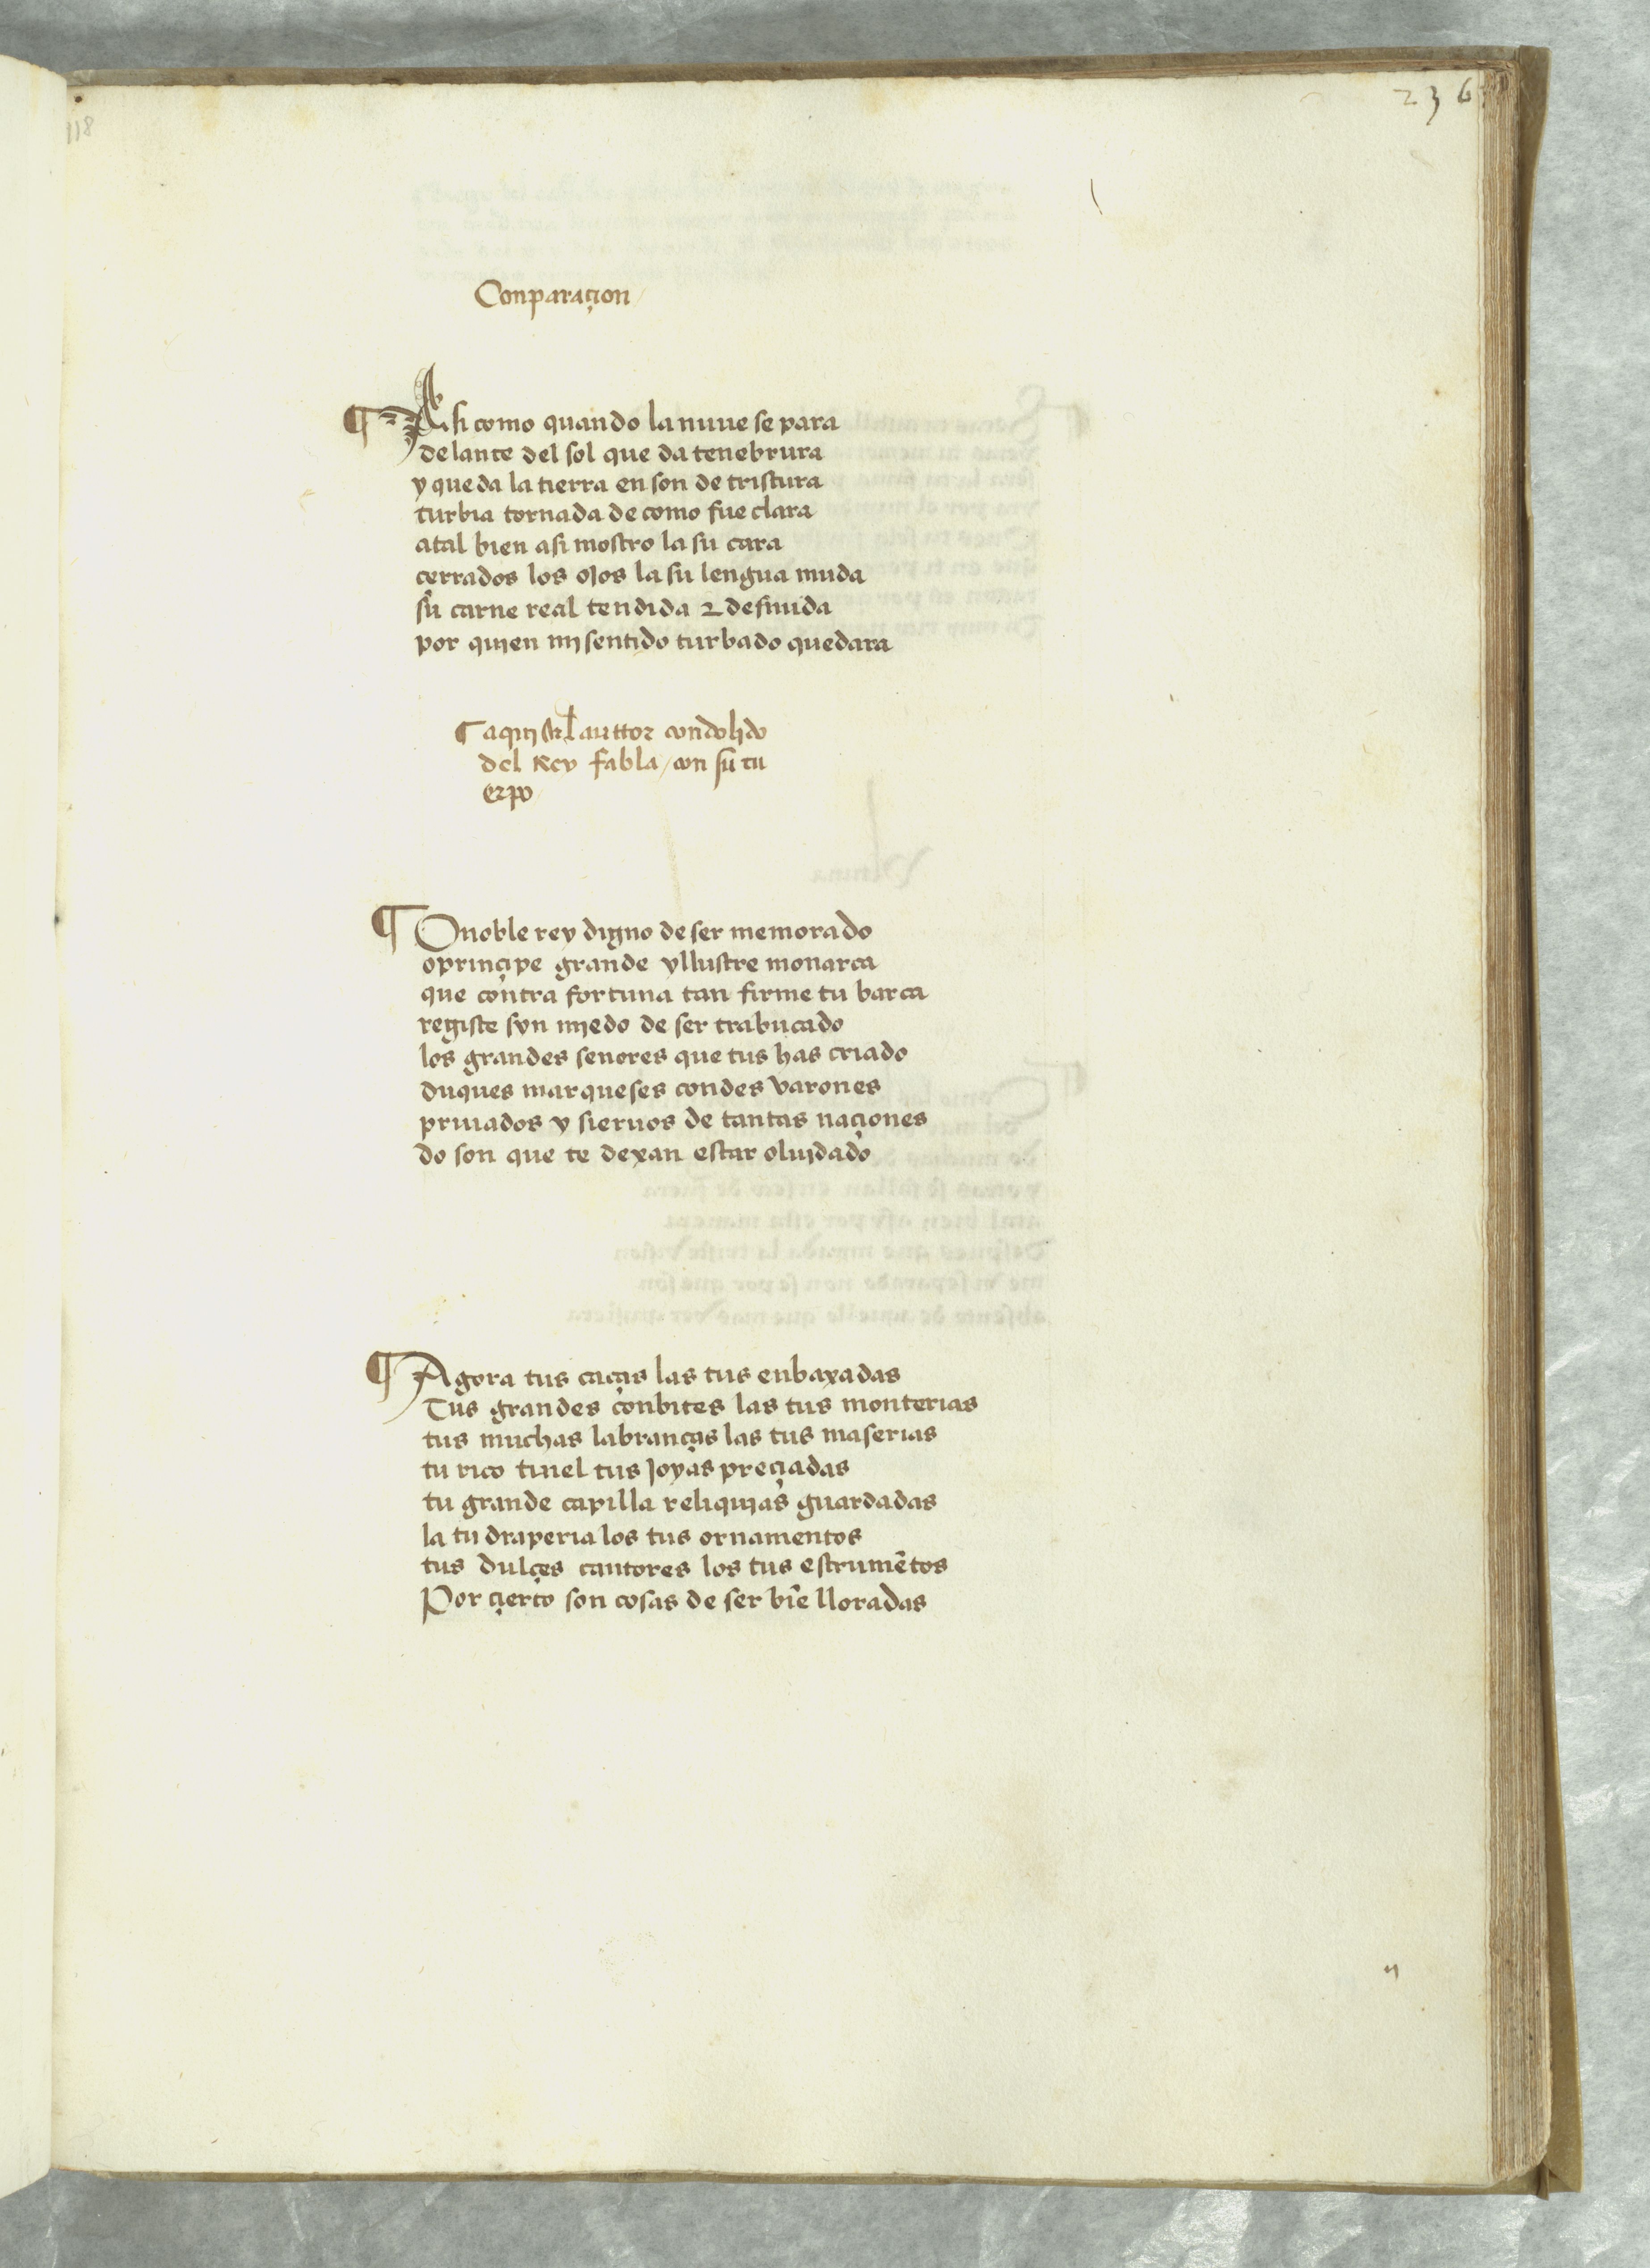 236
118
Conparaçion
¶ Asi como quando la nuue se para
delante del sol que da tenebrura
y queda la tierra en son de tristura
turbia tornada de como fue clara
atal bien asi mostro la su cara
çerrados los ojos la su lengua muda
su carne real tendida & desnuda
por quien mj sentido turbado quedara
¶ aquj el auttor condoljdo
del Rey fabla / con su cu
erpo
¶ O noble rey digno de ser memorado
o prinçipe grande yllustre monarca
que contra fortuna tan firme tu barca
registe syn mjedo de ser trabucado
los grandes senores que tus has criado
duques marqueses condes varones
priuados y sieruos de tantas naçiones
do son que te dexan estar oluidado
¶ Agora tus caças las tus enbaxadas
Tus grandes conbites las tus monterias
tus muchas labranças las tus maserias
tu rico tinel tus joyas preçiadas
tu grande capilla reliquias guardadas
la tu draperia los tus ornamentos
tus dulçes cantores los tus estrumẽtos
Por çierto son cosas de ser biẽ lloradas